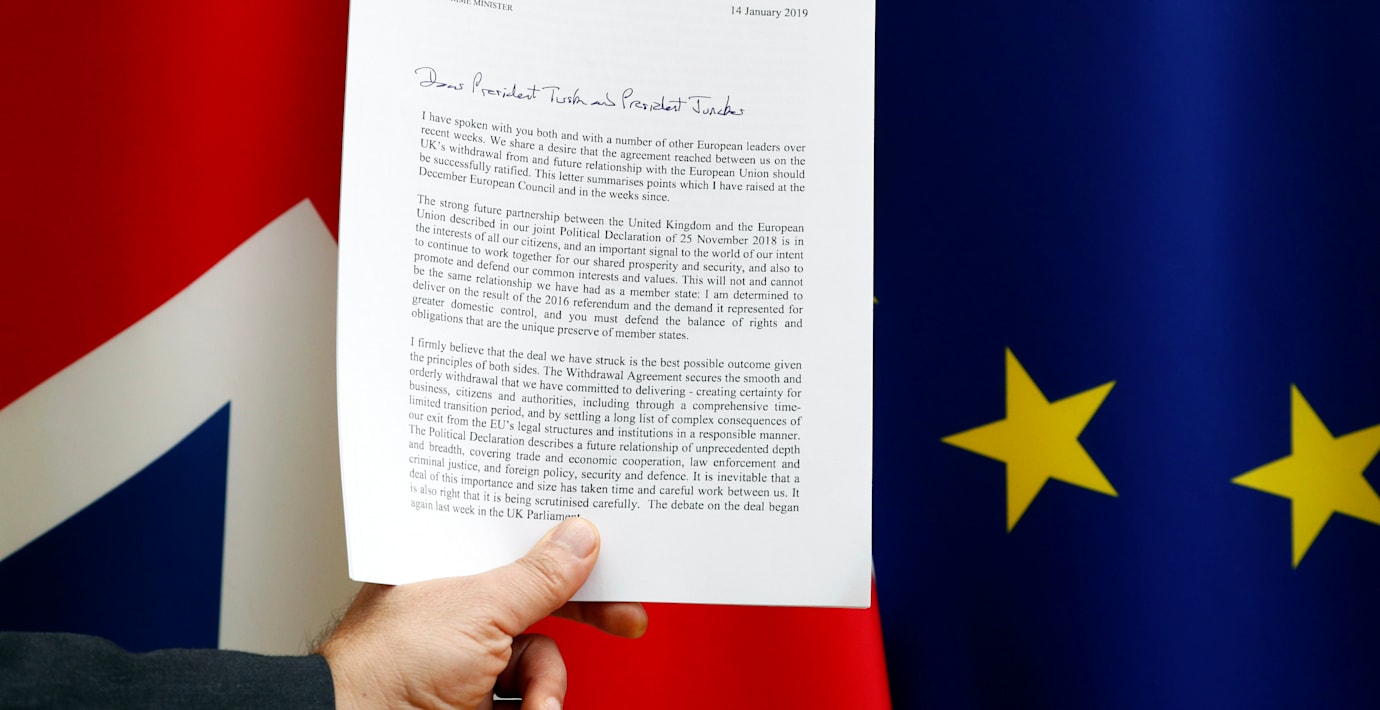 MINISTER
14 January 2019
Dear President Tusk and President Juncker
I have spoken with you both and with a number of other European leaders over
recent weeks. We share a desire that the agreement reached between us on the
UK's withdrawal from and future relationship with the European Union should
be successfully ratified. This letter summarises points which I have raised at the
December European Council and in the weeks since.
The strong future partnership between the United Kingdom and the European
Union described in our joint Political Declaration of 25 November 2018 is in
the interests of all our citizens, and an important signal to the world of our intent
to continue to work together for our shared prosperity and security, and also to
promote and defend our common interests and values. This will not and cannot
be the same relationship we have had as a member state: I am determined to
deliver on the result of the 2016 referendum and the demand it represented for
greater domestic control, and you must defend the balance of rights and
obligations that are the unique preserve of member states.
I firmly believe that the deal we have struck is the best possible outcome given
the principles of both sides. The Withdrawal Agreement secures the smooth and
orderly withdrawal that we have committed to delivering - creating certainty for
business, citizens and authorities, including through a comprehensive time-
limited transition period, and by settling a long list of complex consequences of
our exit from the EU's legal structures and institutions in a responsible manner.
The Political Declaration describes a future relationship of unprecedented depth
and breadth, covering trade and economic cooperation, law enforcement and
criminal justice, and foreign policy, security and defence. It is inevitable that a
deal of this importance and size has taken time and careful work between us. It
is also right that it is being scrutinised carefully. The debate on the deal began
again last week in the UK Parliament